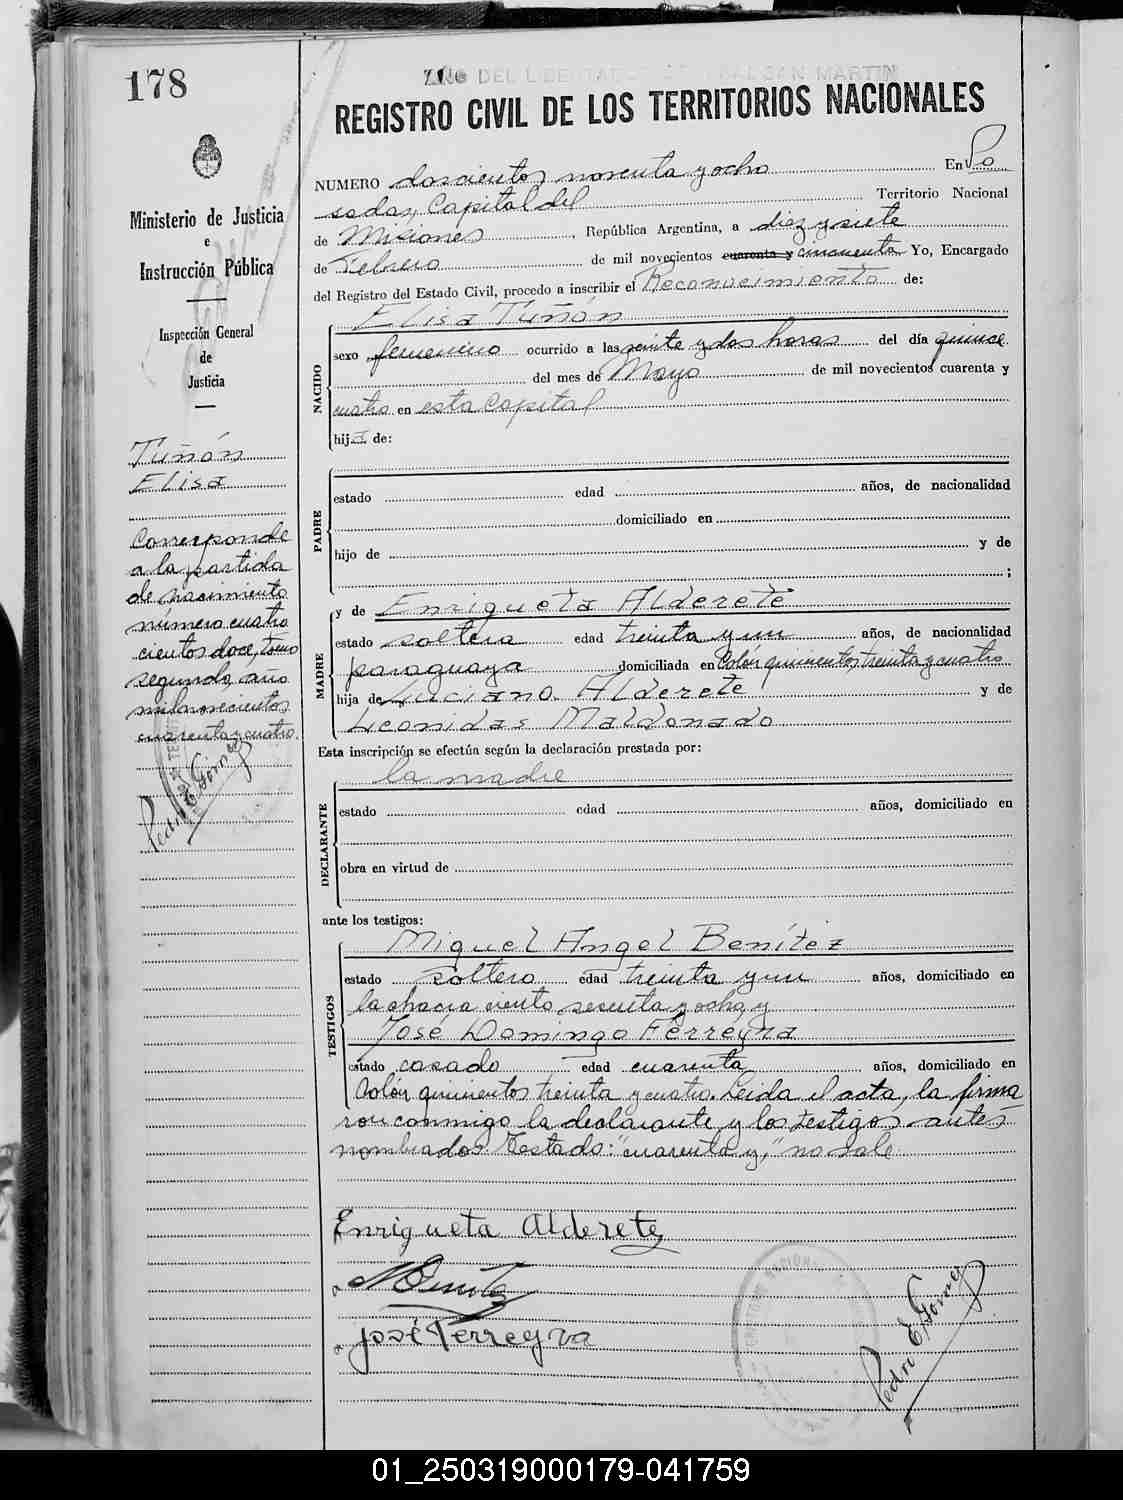 178
AÑO DEL LIBERTADOR GENERAL SAN MARTIN
REGISTRO CIVIL DE LOS TERRITORIOS NACIONALES
Ministerio de Justicia
e
Instrucción Pública
Inspección General
de
Justicia
Tuñón
Elisa
Corresponde
a la partida
de nacimiento
número cuatro
cientos doce, tomo
segundo, año
mil novecientos
cuarenta y cuatro.
Pedro E. Gómez
NUMERO doscientos noventa y ocho En Po
sadas, Capital del Territorio Nacional
de Misiones, República Argentina, a diez y siete
de Febrero de mil novecientos cuarenta y cincuenta Yo, Encargado
del Registro del Estado Civil, procedo a inscribir el Reconocimiento de:
NACIDO
Elisa Tuñón
sexo femenino ocurrido a las veinte y dos horas del día quince
del mes de Mayo de mil novecientos cuarenta y
cuatro en esta Capital
hija de:
PADRE
estado edad años, de nacionalidad
domiciliado en
hijo de y de
;
MADRE
y de Enriqueta Alderete
estado soltera edad treinta y un años, de nacionalidad
paraguaya domiciliada en Colón quinientos treinta y cuatro
hija de Luciano Alderete y de
Leonidas Maldonado
Esta inscripción se efectúa según la declaración prestada por:
la madre
DECLARANTE
estado edad años, domiciliado en
obra en virtud de
ante los testigos:
TESTIGOS
Miguel Angel Benítez
estado soltero edad treinta y un años, domiciliado en
la chacra ciento sesenta y ocho y
José Domingo Ferreyra
estado casado edad cuarenta años, domiciliado en
Colón quinientos treinta y cuatro. Leida el acta, la firma
ron conmigo la declarante y los testigos antes
nombrados. Testado: "cuarenta y," no vale.
Enriqueta Alderete
MBenitez
José Ferreyra
Pedro E. Gómez
01_250319000179-041759